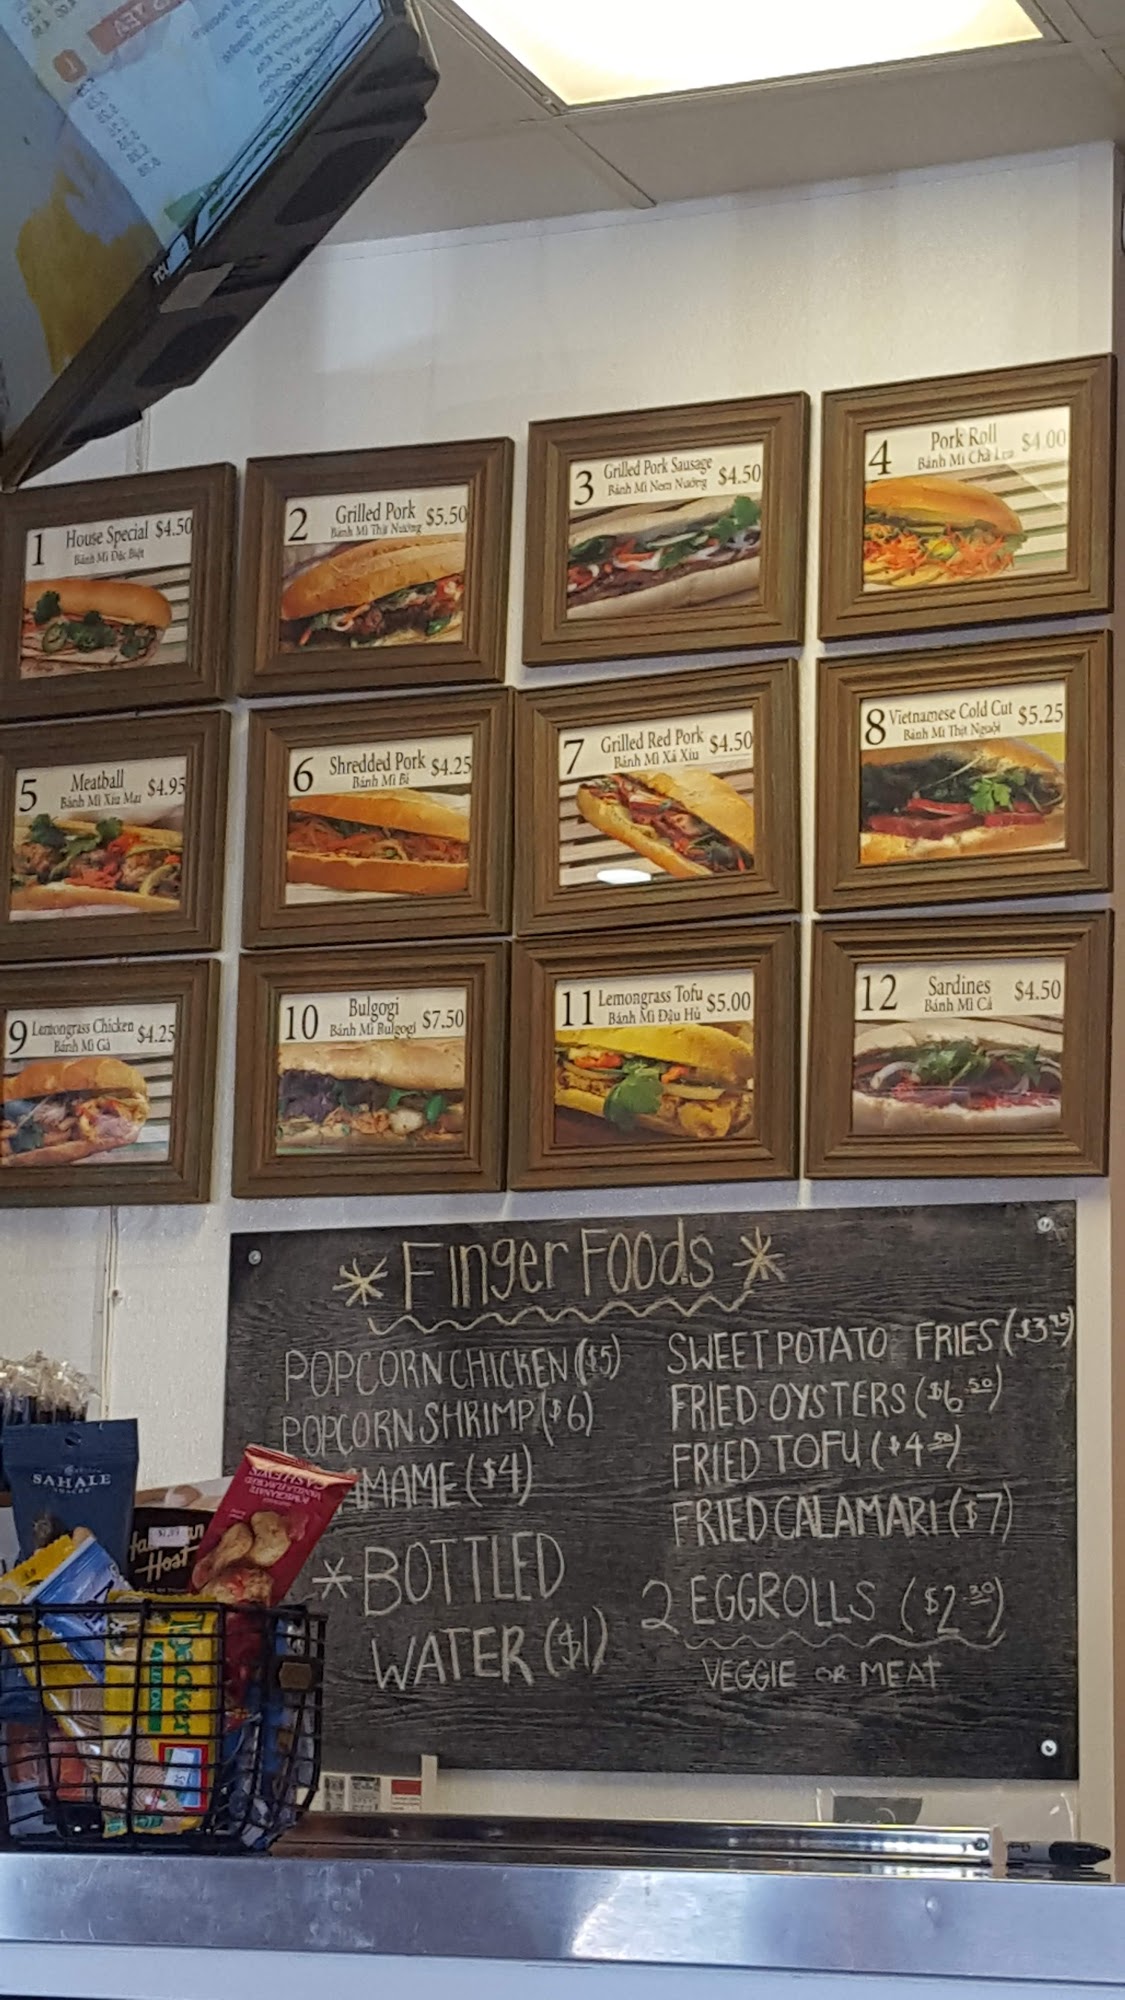 TCL
1 House Special $4.50
Bánh Mì Đặc Biệt
2 Grilled Pork $5.50
Bánh Mì Thịt Nướng
3 Grilled Pork Sausage $4.50
Bánh Mì Nem Nướng
4 Pork Roll $4.00
Bánh Mì Chả Lụa
5 Meatball $4.95
Bánh Mì Xíu Mại
6 Shredded Pork $4.25
Bánh Mì Bì
7 Grilled Red Pork $4.50
Bánh Mì Xá Xíu
8 Vietnamese Cold Cut $5.25
Bánh Mì Thịt Nguội
9 Lemongrass Chicken $4.25
Bánh Mì Gà
10 Bulgogi $7.50
Bánh Mì Bulgogi
11 Lemongrass Tofu $5.00
Bánh Mì Đậu Hủ
12 Sardines $4.50
Bánh Mì Cá
* Finger Foods *
POPCORN CHICKEN ($5)
POPCORN SHRIMP ($6)
AMAME ($4)
* BOTTLED
WATER ($1)
SWEET POTATO FRIES ($3.95)
FRIED OYSTERS ($6.50)
FRIED TOFU ($4.50)
FRIED CALAMARI ($7)
2 EGGROLLS ($2.30)
VEGGIE OR MEAT
SAHALE
SNACKS
Host
CASHEWS